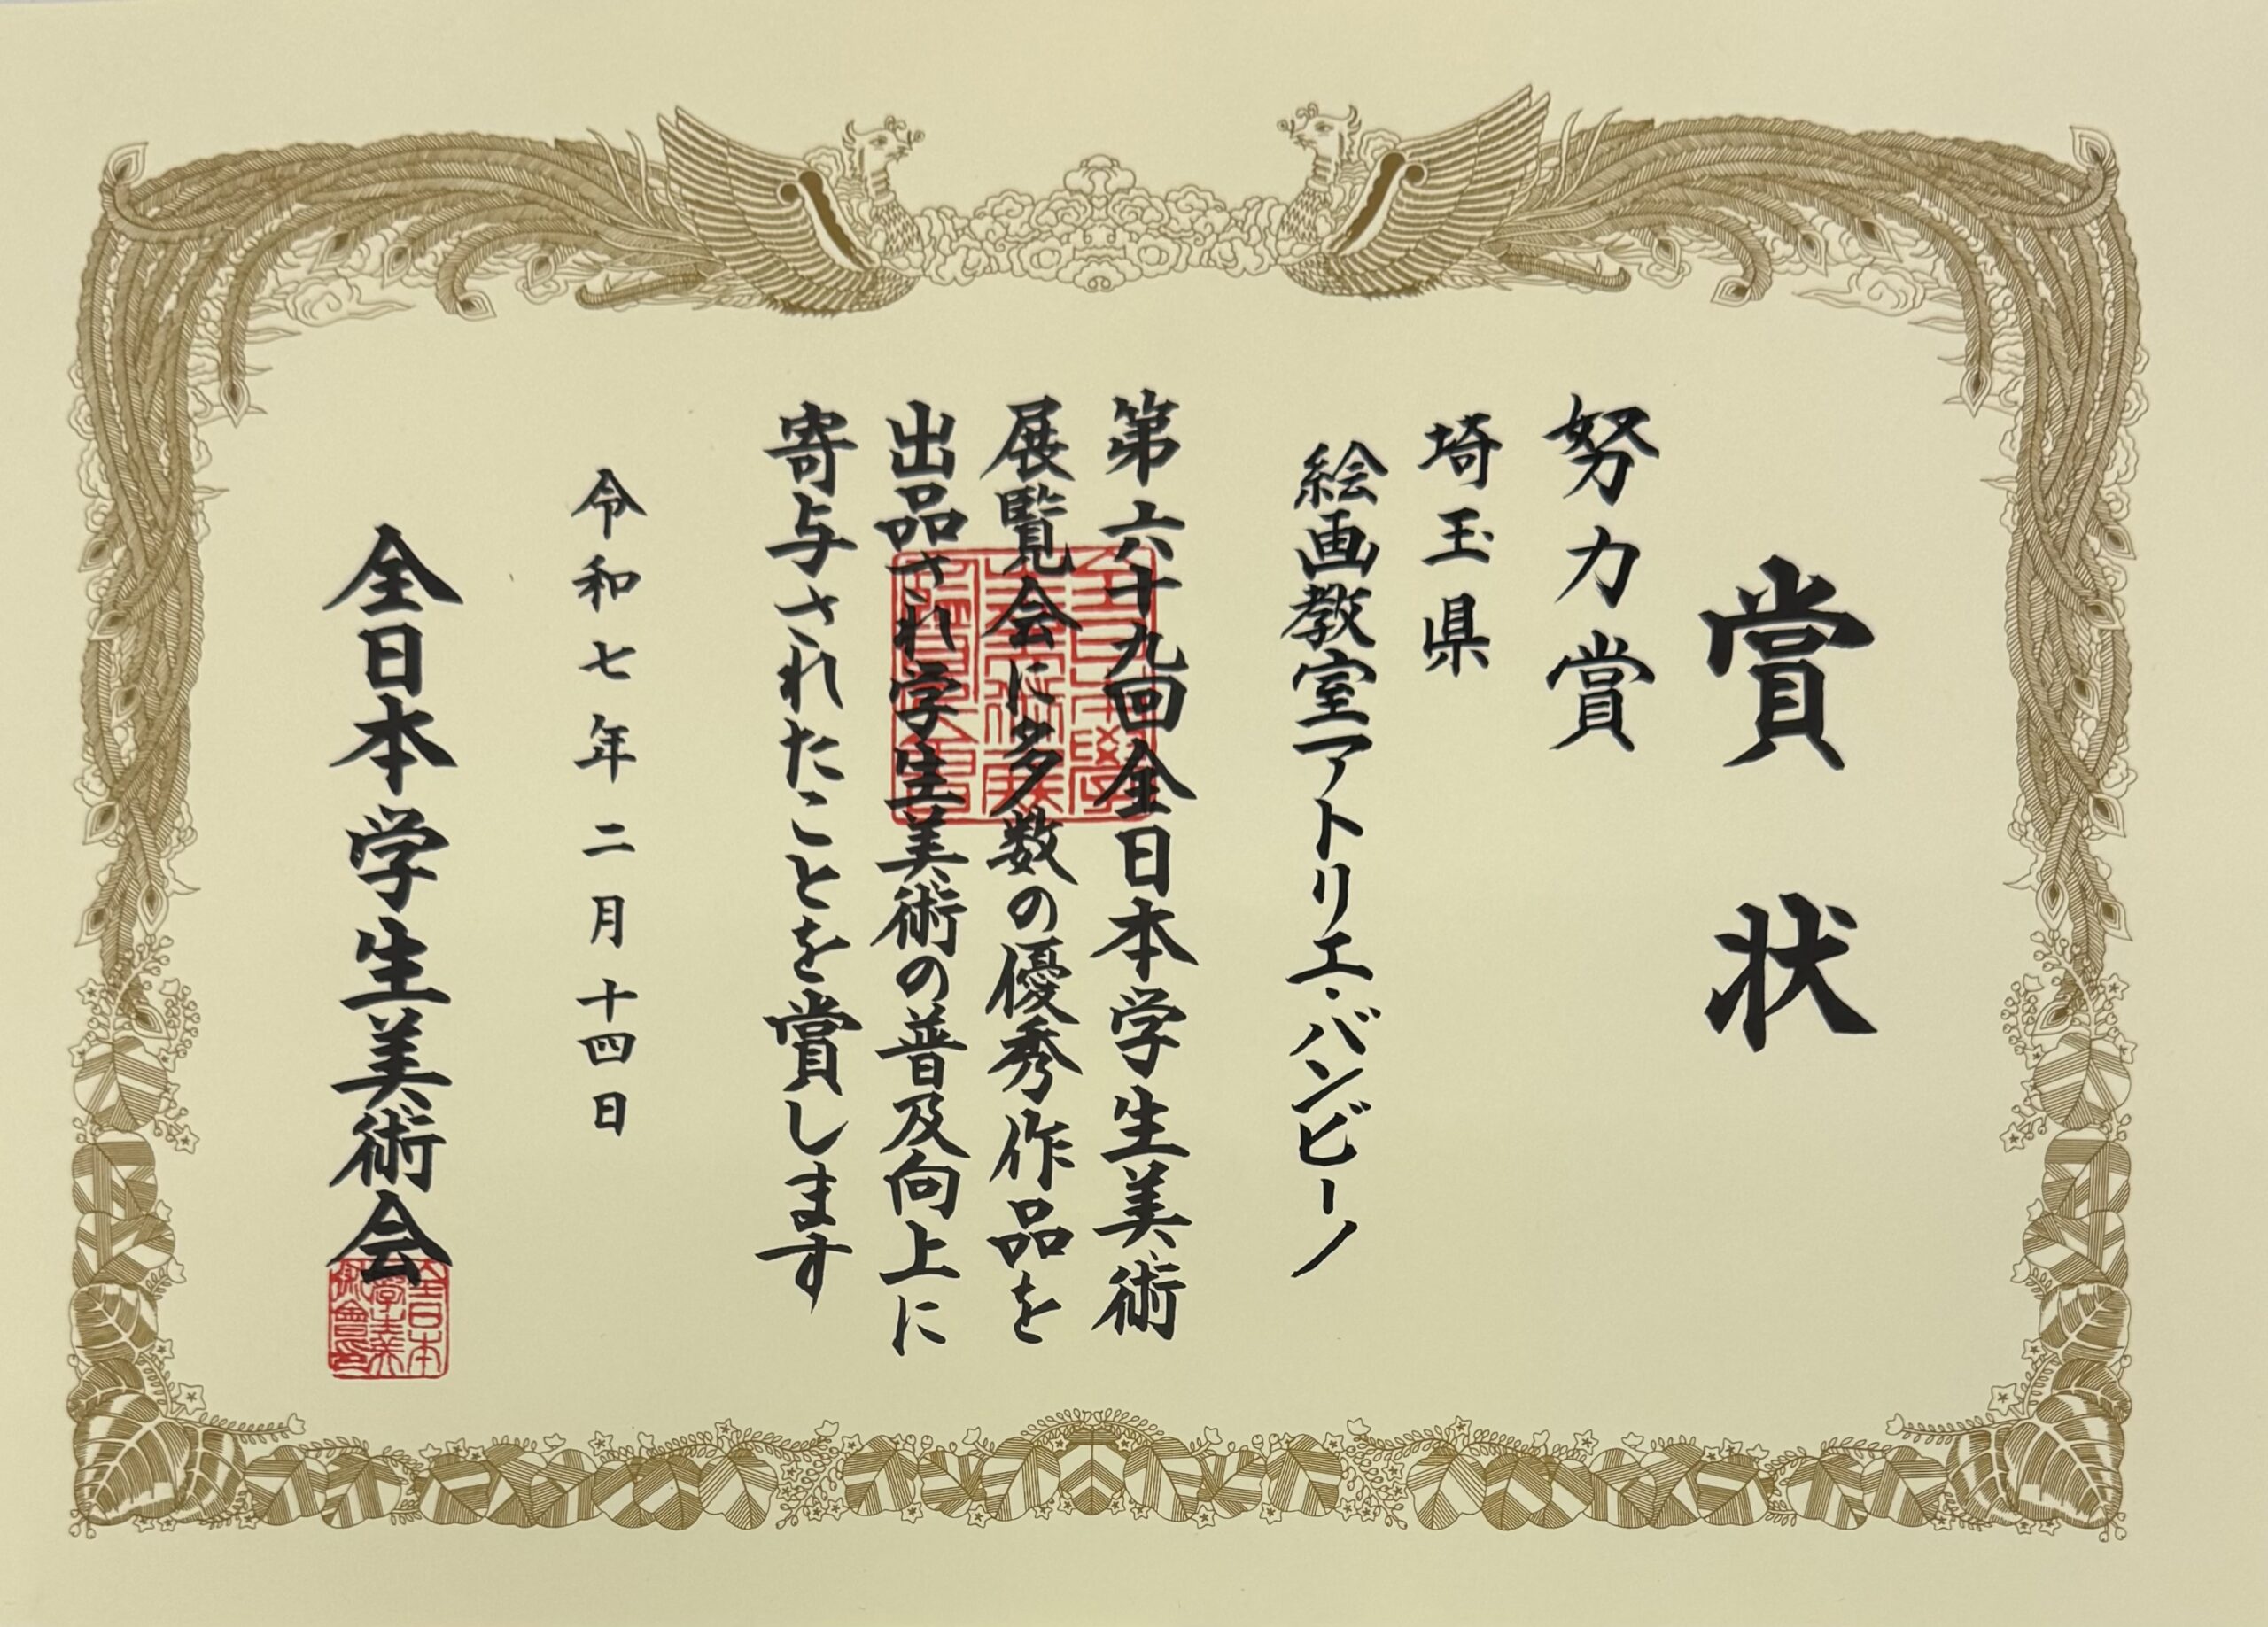 賞状
努力賞
埼玉県
絵画教室アトリエ・バンビーノ
第六十九回全日本学生美術
展覧会に多数の優秀作品を
出品され学生美術の普及向上に
寄与されたことを賞します
令和七年二月十四日
全日本学生美術会